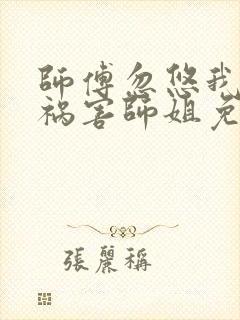 師傅忽悠我
祸害師姐免
張麗稱